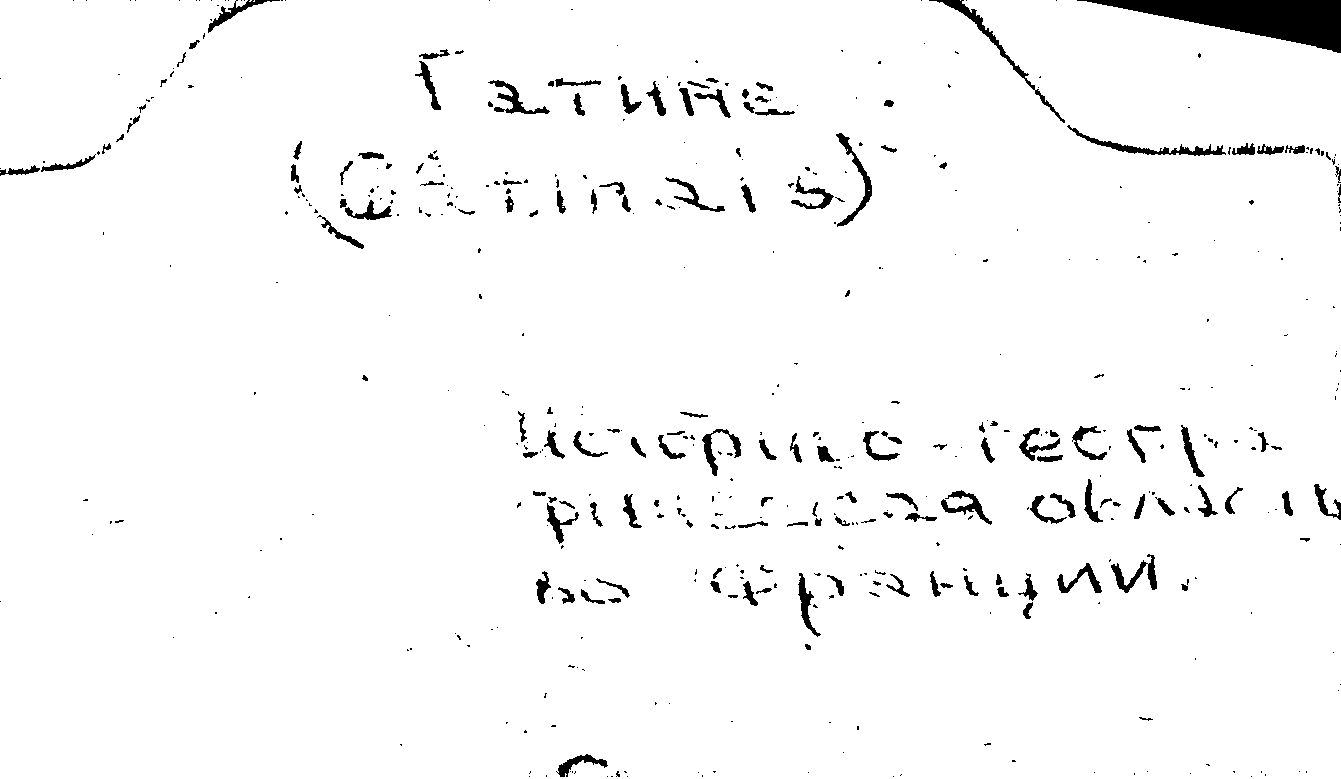 Гатине
(GAtinais)
Историко-геогра
фическая область
во Франции.